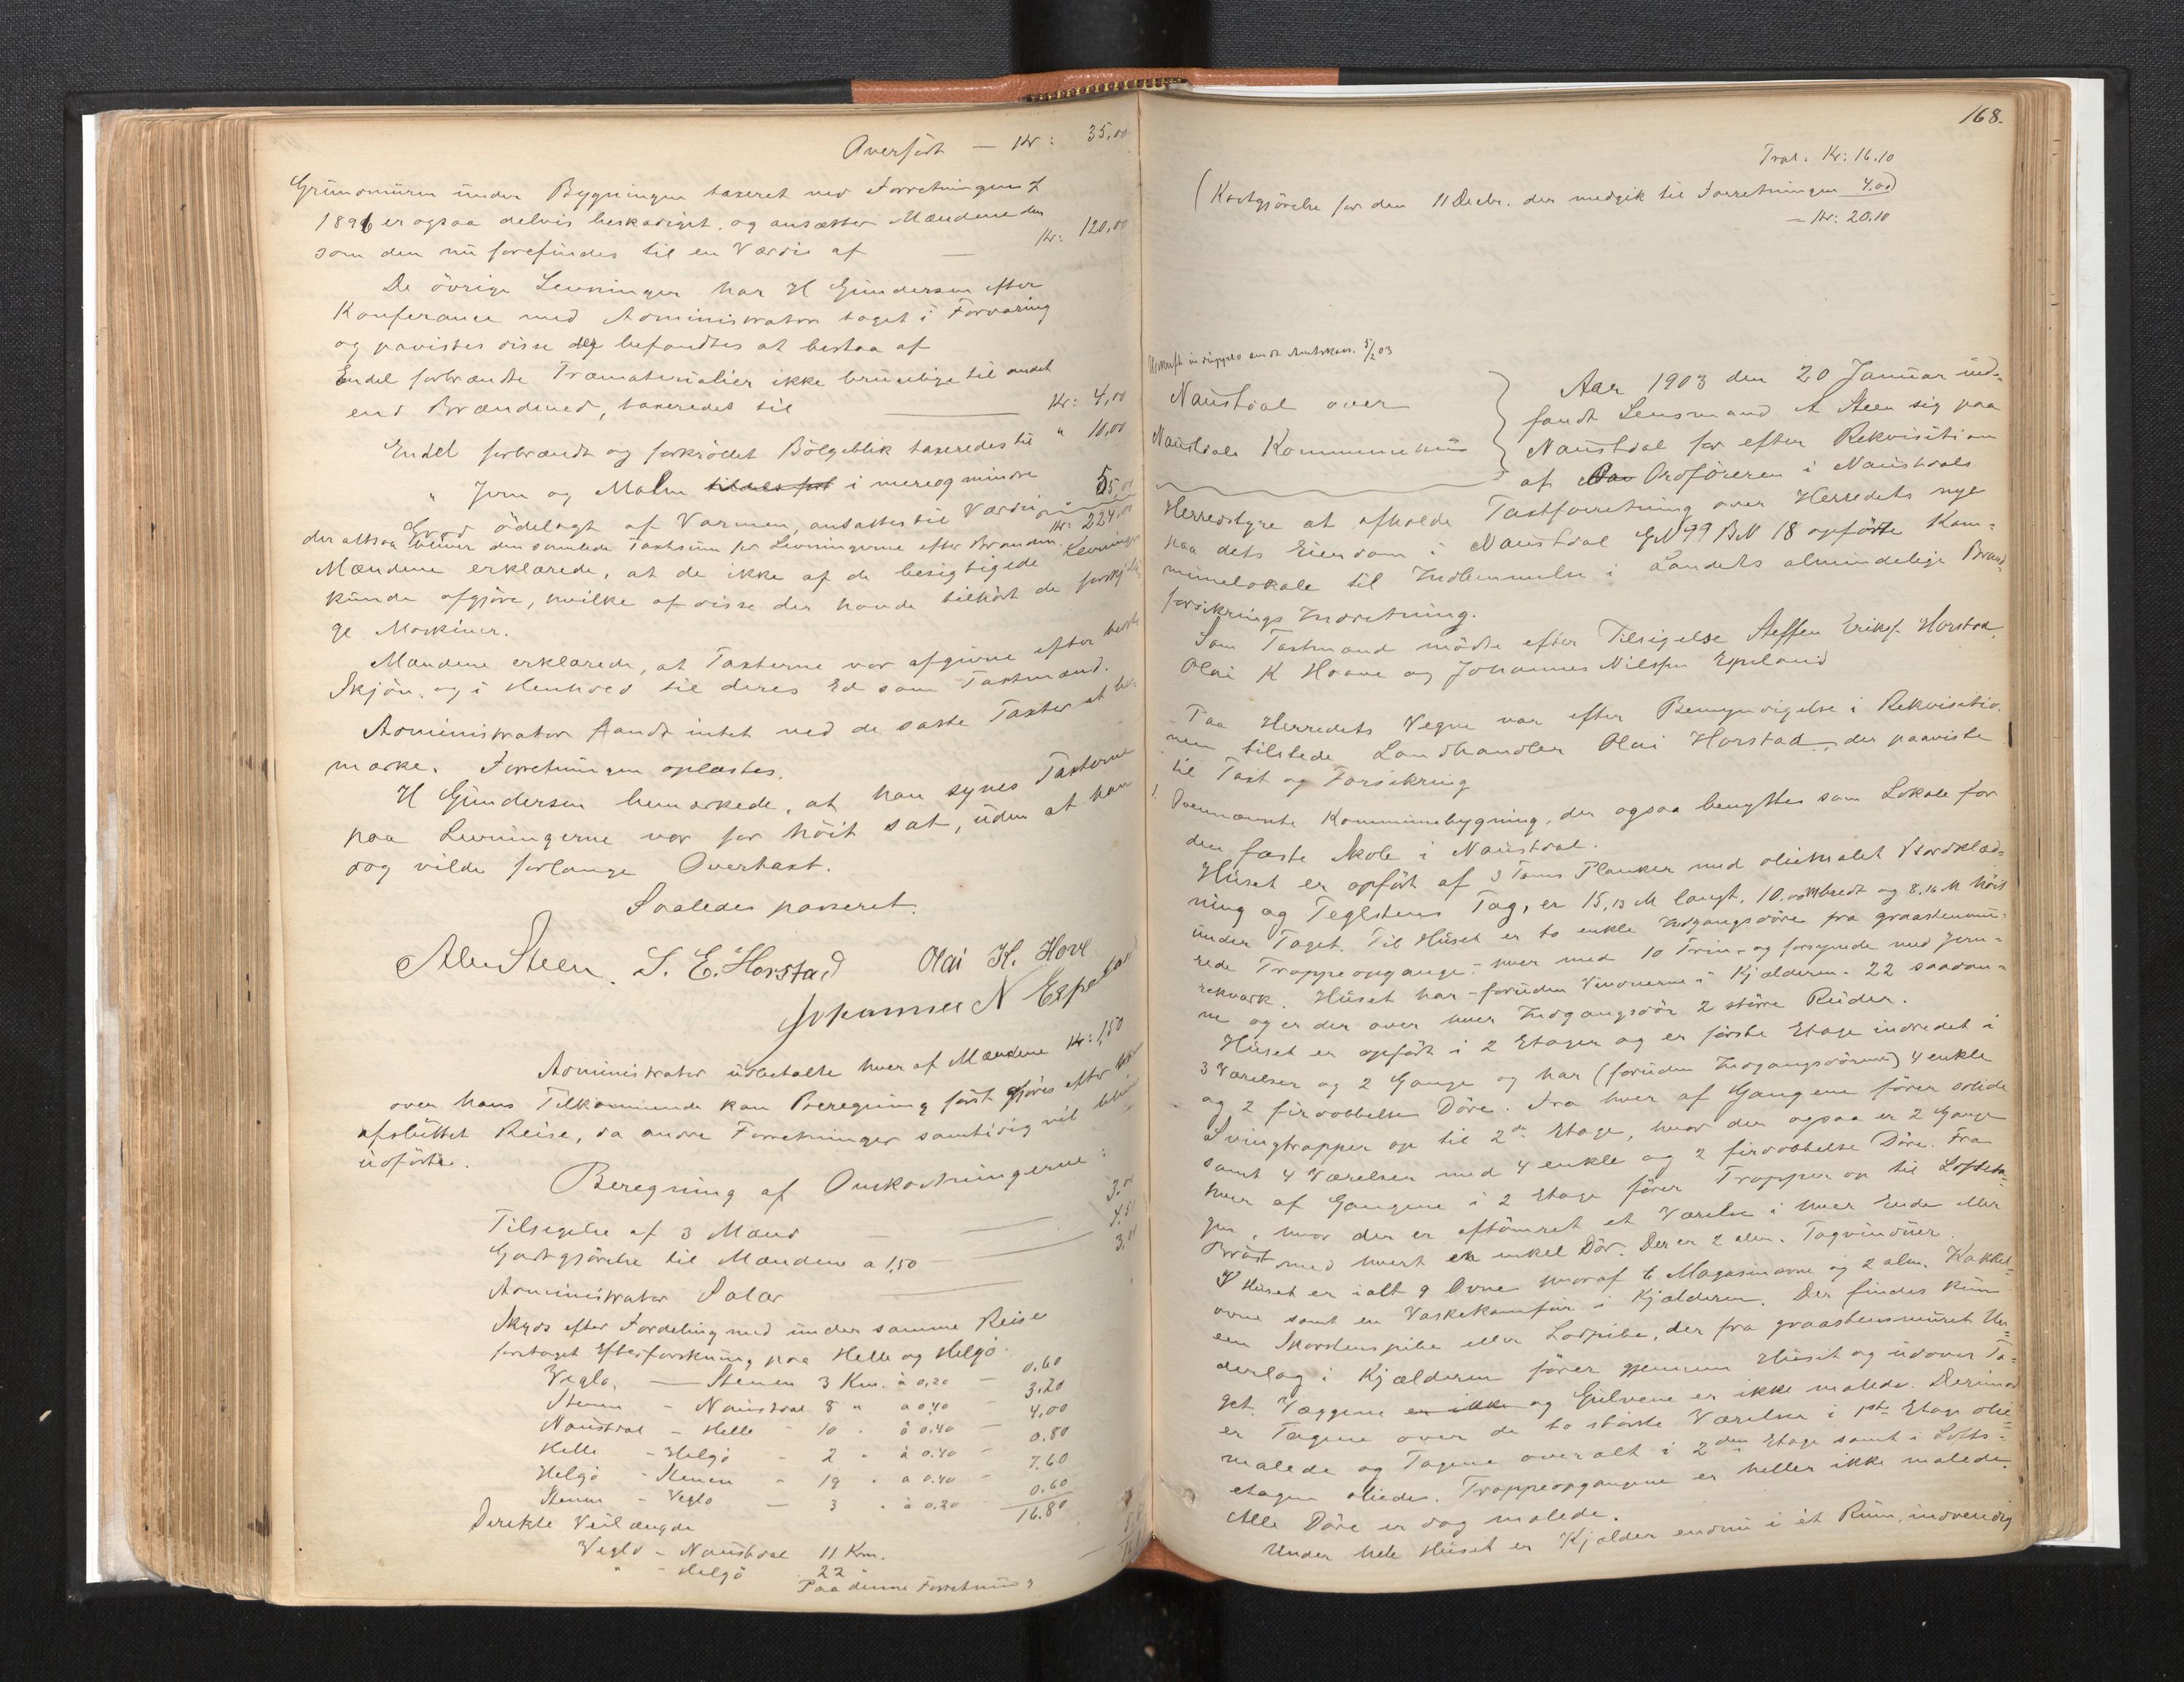 Overført — Kr: 35,00
Grundmuren under Bygningen taxeret ved Forretningen
1896 er ogsaa delvis beskadiget, og ansætter Mændene den
som den nu forefindes til en Værdie af — Kr: 120,00
De övrige Levninger har H Gundersen efter
Konferance med Administrator taget i Forvaring
og paavistes disse befandtes at bestaa af
Endel forbrændte Træmaterialier ikke brugelige til andet
end Brændeved, taxeredes til — Kr: 4,00
Endel forbrændt og forkröllet Bölgeblik taxeredes til " 10,00
" Jern og Malm i mere og mindre
Grad ödelagt af Varmen, ansattes til Værdi 55,00
der altsaa bliver den samlede Taxtsum for Levningerne efter Branden Kr: 224,00
Mændene erklærede, at de ikke af de besigtigede Levninger
kunde afgjöre, hvilke af disse der havde tilhört de forskjelli
ge Maskiner.
Mændene erklærede, at Taxterne var afgivne efter bedste
Skjön og i Henhold til deres Ed som Taxtmænd.
Administrator fandt intet ved de satte Taxter at be-
mærke. Forretningen oplæstes.
H Gundersen bemærkede, at han synes Taxterne
paa Levningerne var for höit sat, uden at han
dog vilde forlange Overtaxt.
Saaledes passeret.
Alb Steen. S. E. Horstad Olai K. Hove
Johannes N Espeland
Administrator udbetalte hver af Mændene Kr: 1,50
over hans Tilkommende kan Beregning först gjöres efter
afsluttet Reise, da andre Forretninger samtidig vil blive
udförte.
Beregning af Omkostningerne:
Tilsigelse af 3 Mænd — 3.00
Godtgjörelse til Mændene a 1,50 — 4.50
Administrator Salar — 3.00
Skyds efter Fordeling med under samme Reise
foretaget Efterforskning paa Helle og Helgö.
Vegla, — Stenen 3 Km. à 0,20 — 0.60
Stenen - Naustdal 8 " a 0,40 — 3.20
Naustdal - Helle - 10 " à 0.40 — 4,00
Helle - Helgö - 2 " à 0.40 — 0.80
Helgö - Stenen - 19 " a 0.40 — 7.60
Stenen - Vegla — 3 " à 0.20 — 0.60
16.80
Direkte Veilængde
Vegla - Naustdal 11 Km.
" - Helgö 22 "
Paa denne Forretning
168.
Tral. Kr: 16.10
(Kostgjörelse for den 11 Decbr. der medgik til Forretningen 4.00)
— Kr: 20.10
Udskrift in duplo sendt Amtskass. 5/2 03
Naustdal over
Naustdals Kommunehus
Aar 1903 den 20 Januar ind-
fandt Lensmand A Steen sig paa
Naustdal for efter Rekvisition
af Ordföreren i Naustdals
Herredstyre at afholde Taxtforretning over Herredets nye
paa dets Eiendom i Naustdal GN 99 BN 18 opförte Kom-
munelokale til Indlemmelse i Landets almindelige Brand-
forsikrings Indretning.
Som Taxtmænd mödte efter Tilsigelse Steffen Eriks. Horstad,
Olai K Hove og Johannes Nilssen Espeland
Paa Herredets Vegne var efter Bemyndigelse i Rekvisitio-
nen tilstede Landhandler Olai Horstad, der paaviste
til Taxt og Forsikring
1. Ovennævnte Kommunebygning, der ogsaa benyttes som Lokale for
den faste Skole i Naustdal.
Huset er opfört af 3 Toms Planker med oliemalet Bordklæd-
ning og Teglstens Tag, er 15,13 M langt, 10. M bredt og 8.16 M höit
under Taget. Til Huset er to enkle Indgangsdöre fra graastensmu-
rede Trappeopgange, hver med 10 Trin, og forsynede med Jern-
rekværk. Huset har foruden Vinduerne i Kjælderen 22 saadan-
ne og er der over hver Indgangsdör 2 större Ruder.
Huset er opfört i 2 Etager og er förste Etage indredet i
3 Værelser og 2 Gange og har (foruden Indgangsdörene) 4 enkle
og 2 firdobbelte Döre. Fra hver af Gangene förer solide
Svingtrapper op til 2de Etage, hvor der ogsaa er 2 Gange
samt 4 Værelser med 4 enkle og 2 firdobbelte Döre. Fra
hver af Gangene i 2 Etage förer Trapper op til Loftseta-
gen, hvor der er aftömret et Værelse i hver Ende eller
Bröst med hvert en enkel Dör. Der er 2 alm. Tagvinduer.
I Huset er ialt 9 Ovne hvoraf 6 Magasinovne og 2 alm. Kakkel-
ovne samt en Vaskekomfur i Kjælderen. Der findes kun
een Skorstenspibe eller Lodpibe, der fra graastensmuret Un-
derlag i Kjælderen förer gjennem Huset og udover Ta-
get. Væggene er ikke og Gulvene er ikke malede. Derimod
er Tagene over de to störste Værelser i 1ste Etage olie-
malede og Tagene overalt i 2den Etage samt i Lofts-
etagen oliedes. Trappeopgangene er heller ikke malede.
Alle Döre er dog malede.
Under hele Huset er Kjælder endnu i et Rum, indvendig